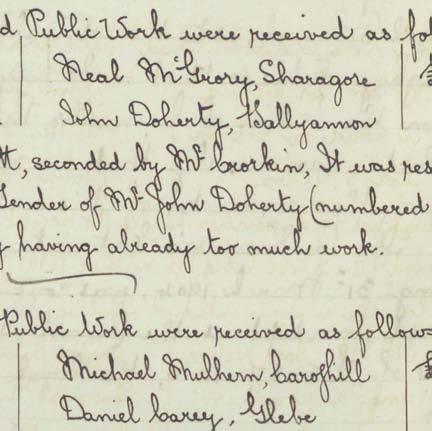 d Public Work were received as fol
Neal McGrory, Sharagore
John Doherty, Ballyannon
tt, seconded by Mr Corkin, It was res
Tender of Mr John Doherty (numbered
y having already too much work.
Public Work were received as follow
Michael Mulhern, Carofhill
Daniel Carey, Glebe